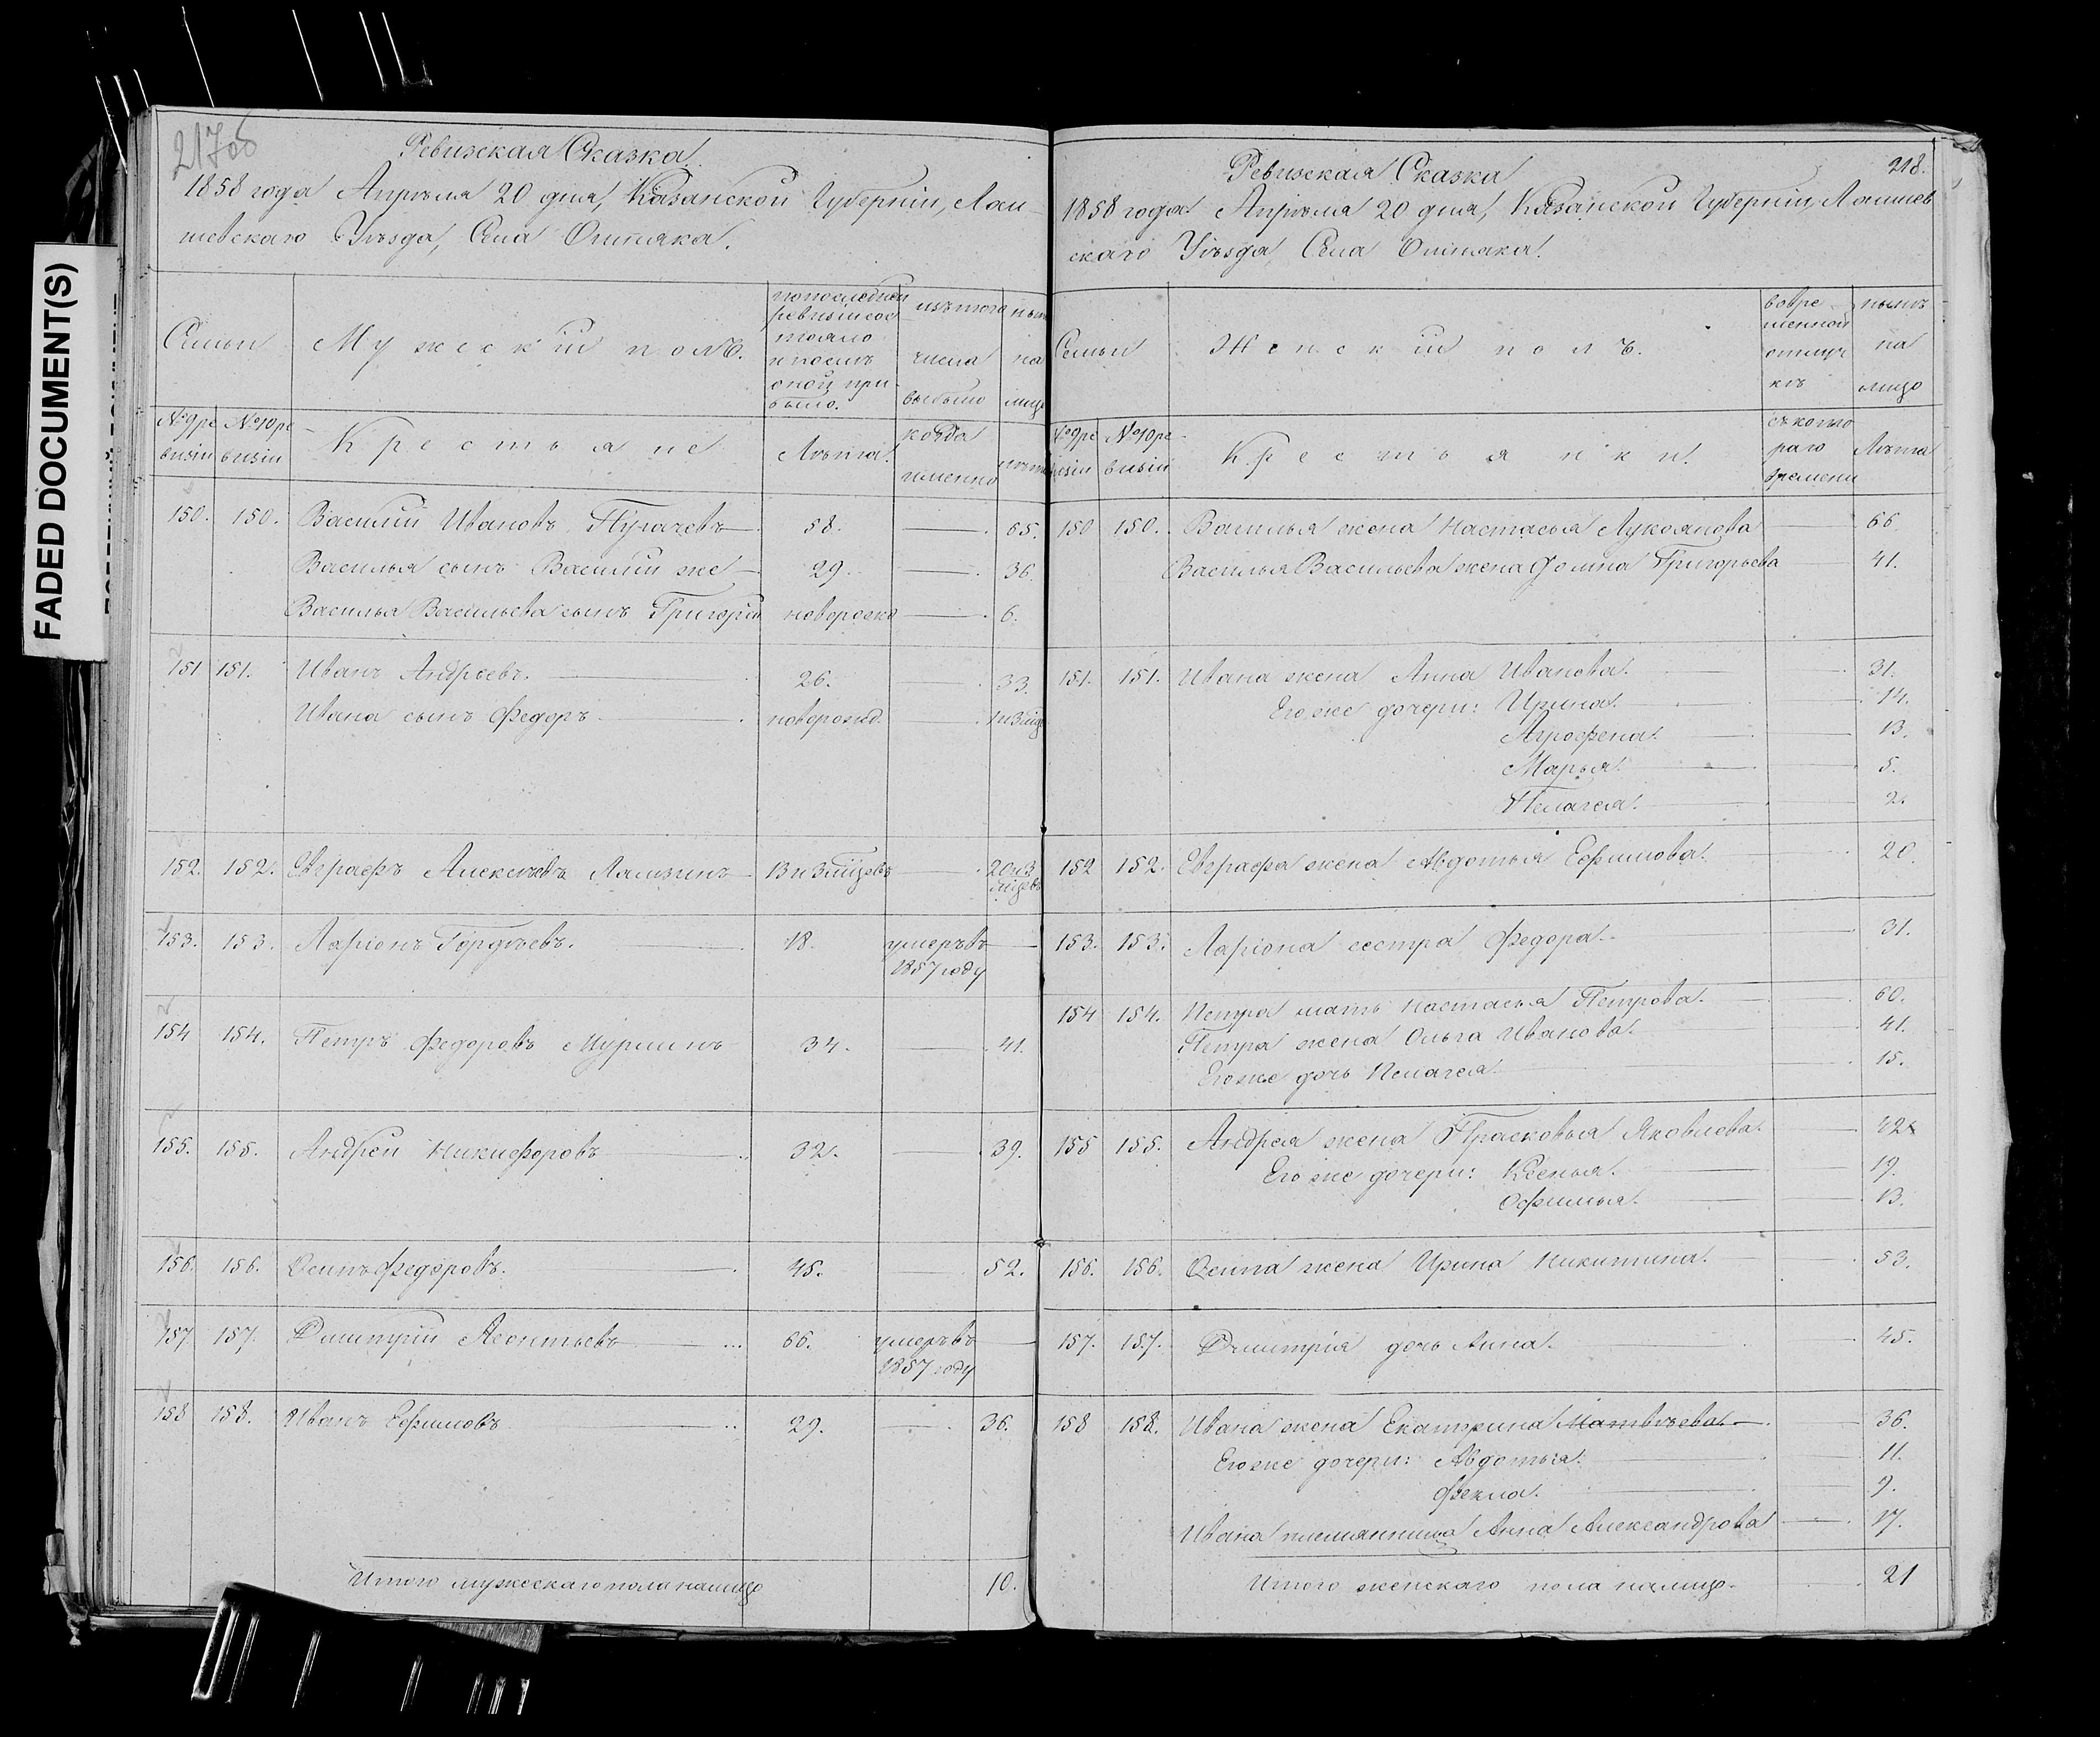 FADED DOCUMENT(S)
217об
Ревизская Сказка.
1858 года Апрѣля 20 дня, Казанской Губерніи, Лаи-
шевскаго Уѣзда, Села Ошняка.
Семьи
Мужескій полъ.
по последней
ревизіи сос
тояло
и послѣ
оной при-
было.
изъ того
числа
выбыло
ныне
на
лицо
№ 9 ре
визіи
№ 10 ре-
визіи
Крестьяне
Лѣта.
когда
именно
лѣта
150. 150. Василій Ивановъ Пугачевъ 58. 65.
Василья сынъ Василій же 29. 36.
Василья Васильева сынъ Григорій новорожд 6.
151 151. Иванъ Андрѣевъ. 26. 33.
Ивана сынъ Федоръ новорожд. 1 и 3 мѣц
152. 152. Евграфъ Алексѣевъ Лямзинъ 13 и 3 мѣцовъ 20 и 3
мѣцовъ
153. 153. Ларіонъ Гордѣевъ. 18. умеръ въ
1857 году
154 154. Петръ Федоровъ Муршинъ 34. 41.
155. 155. Андрей Никифоровъ 32. 39.
156. 156. Осипъ Федоровъ. 45. 52.
157. 157. Дмитрій Леонтьевъ 66. умеръ въ
1857 году
158 158. Иванъ Ефимовъ 29. 36.
Итого мужескаго пола на лицо 10.
218.
Ревизская Сказка
1858 года Апрѣля 20 дня, Казанской Губерніи, Лаишев
скаго Уѣзда, Села Ошняка.
Семьи
Женскій полъ.
во вре
менной
отлуч
кѣ
нынѣ
на
лицо
№ 9 ре
визіи
№ 10 ре-
визіи
Крестьянки.
съ кото
раго
времени
Лѣта
150 150. Василья жена Настасья Лукоянова 66.
Василья Васильева жена Фолина Григорьева 41.
151. 151. Ивана жена Анна Иванова. 31.
Его же дочери: Ирина. 14.
Агрофена. 13.
Марья. 5.
Пелагея. 2.
152 152. Евграфа жена Авдотья Ефимова. 20.
153. 153. Ларіона сестра Федора. 31.
154 154. Петра мать Настасья Петрова. 60.
Петра жена Ольга Иванова. 41.
Его же дочь Пелагея. 15.
155 155. Андрея жена Прасковья Яковлева. 42
Его же дочери: Ксенья. 19.
Офимья. 13.
156. 156. Осипа жена Ирина Никитина. 53.
157. 157. Дмитрія дочь Анна. 45.
158 158. Ивана жена Екатерина Матвѣева. 36.
Его же дочери: Авдотья. 11.
Фекла. 9.
Ивана племянница Анна Александрова 17.
Итого женскаго пола на лицо. 21